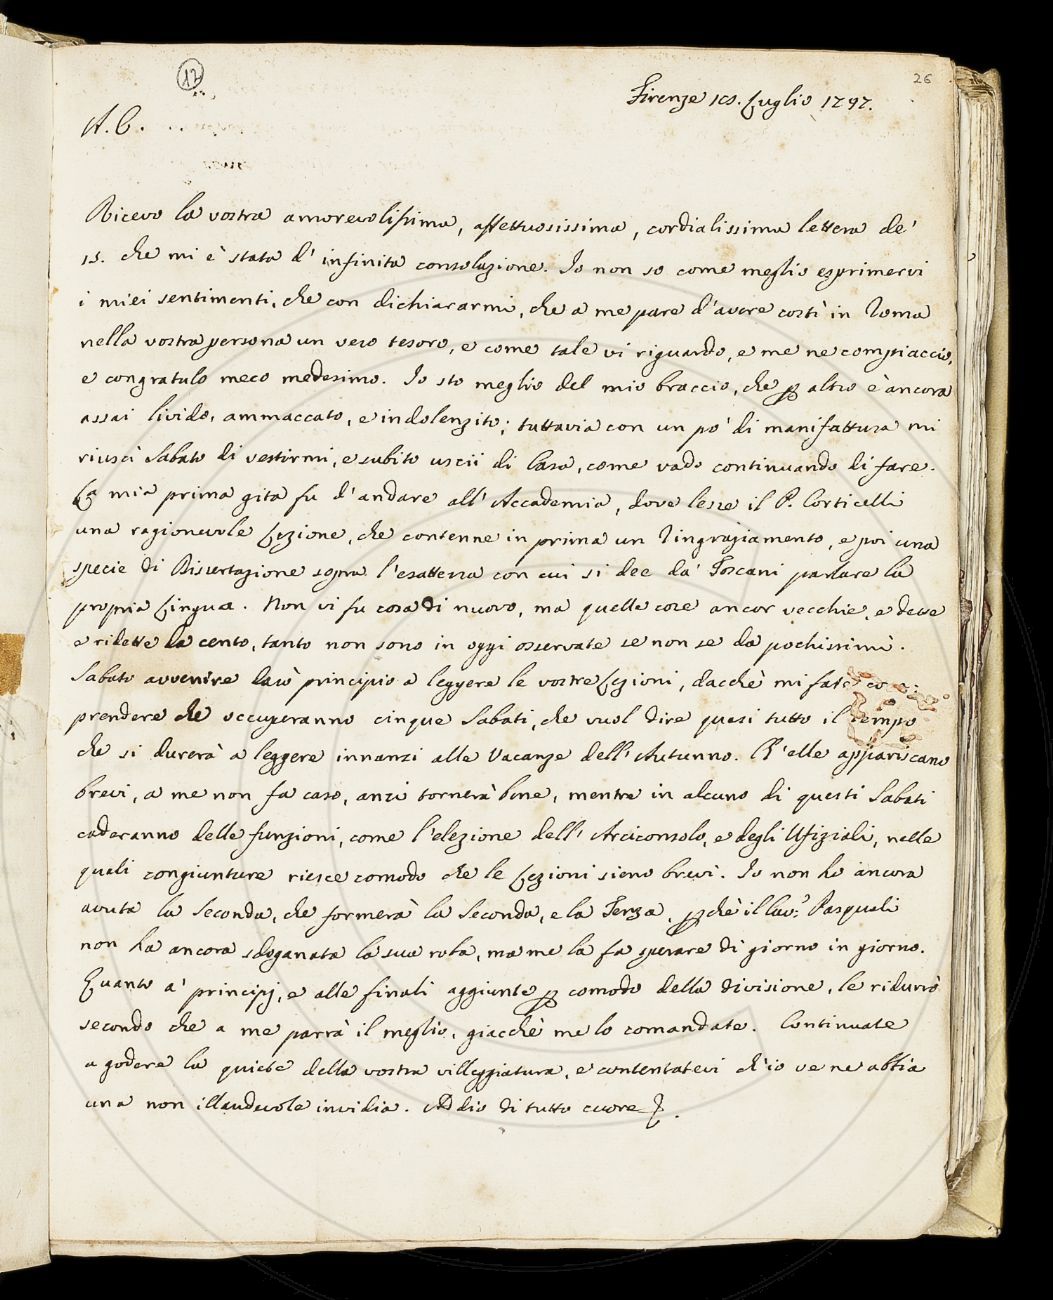 12
26
Firenze 18. Luglio 1747.
A. C.
Ricevo la vostra amorevolissima, affettuosissima, cordialissima lettera de'
15. che mi è stata d'infinita consolazione. Io non so come meglio esprimervi
i miei sentimenti, che con dichiararmi, che a me pare d'avere costì in Roma
nella vostra persona un vero tesoro, e come tale vi riguardo, e me ne compiaccio,
e congratulo meco medesimo. Io sto meglio del mio braccio, che p altro è ancora
assai livido, ammaccato, e indolenzito; tuttavia con un po' di manifattura mi
riuscì Sabato di vestirmi, e subito uscii di Casa, come vado continuando di fare.
La mia prima gita fu d'andare all'Accademia, dove lesse il P. Corticelli
una ragionevole Lezione, che contenne in prima un Ringraziamento, e poi una
specie di Dissertazione sopra l'esattezza con cui si dee da' Toscani parlare la
propria Lingua. Non vi fu cosa di nuovo, ma quelle cose ancor vecchie, e dette
e ridette da cento, tanto non sono in oggi osservate se non se da pochissimi.
Sabato avvenire darò principio a leggere le vostre Lezioni, dacchè mi fate com-
prendere che occuperanno cinque Sabati, che vuol dire quasi tutto il tempo
che si durerà a leggere innanzi alle Vacanze dell'Autunno. Ch'elle appariscano
brevi, a me non fa caso, anzi tornerà bene, mentre in alcuno di questi Sabati
caderanno delle funzioni, come l'elezione dell'Arciconsolo, e degli Ufiziali, nelle
quali congiunture riesce comodo che le Lezioni sieno brevi. Io non ho ancora
avuta la Seconda, che formerà la Seconda, e la Terza, pchè il Cav.r Pasquali
non ha ancora sdoganata la sua roba, ma me la fa sperare di giorno in giorno.
Quanto a' principj, e alle finali aggiunte p comodo della divisione, le ridurrò
secondo che a me parrà il meglio, giacchè me lo comandate. Continuate
a godere la quiete della vostra villeggiatura, e contentatevi ch'io ve ne abbia
una non illaudevole invidia. Addio di tutto cuore